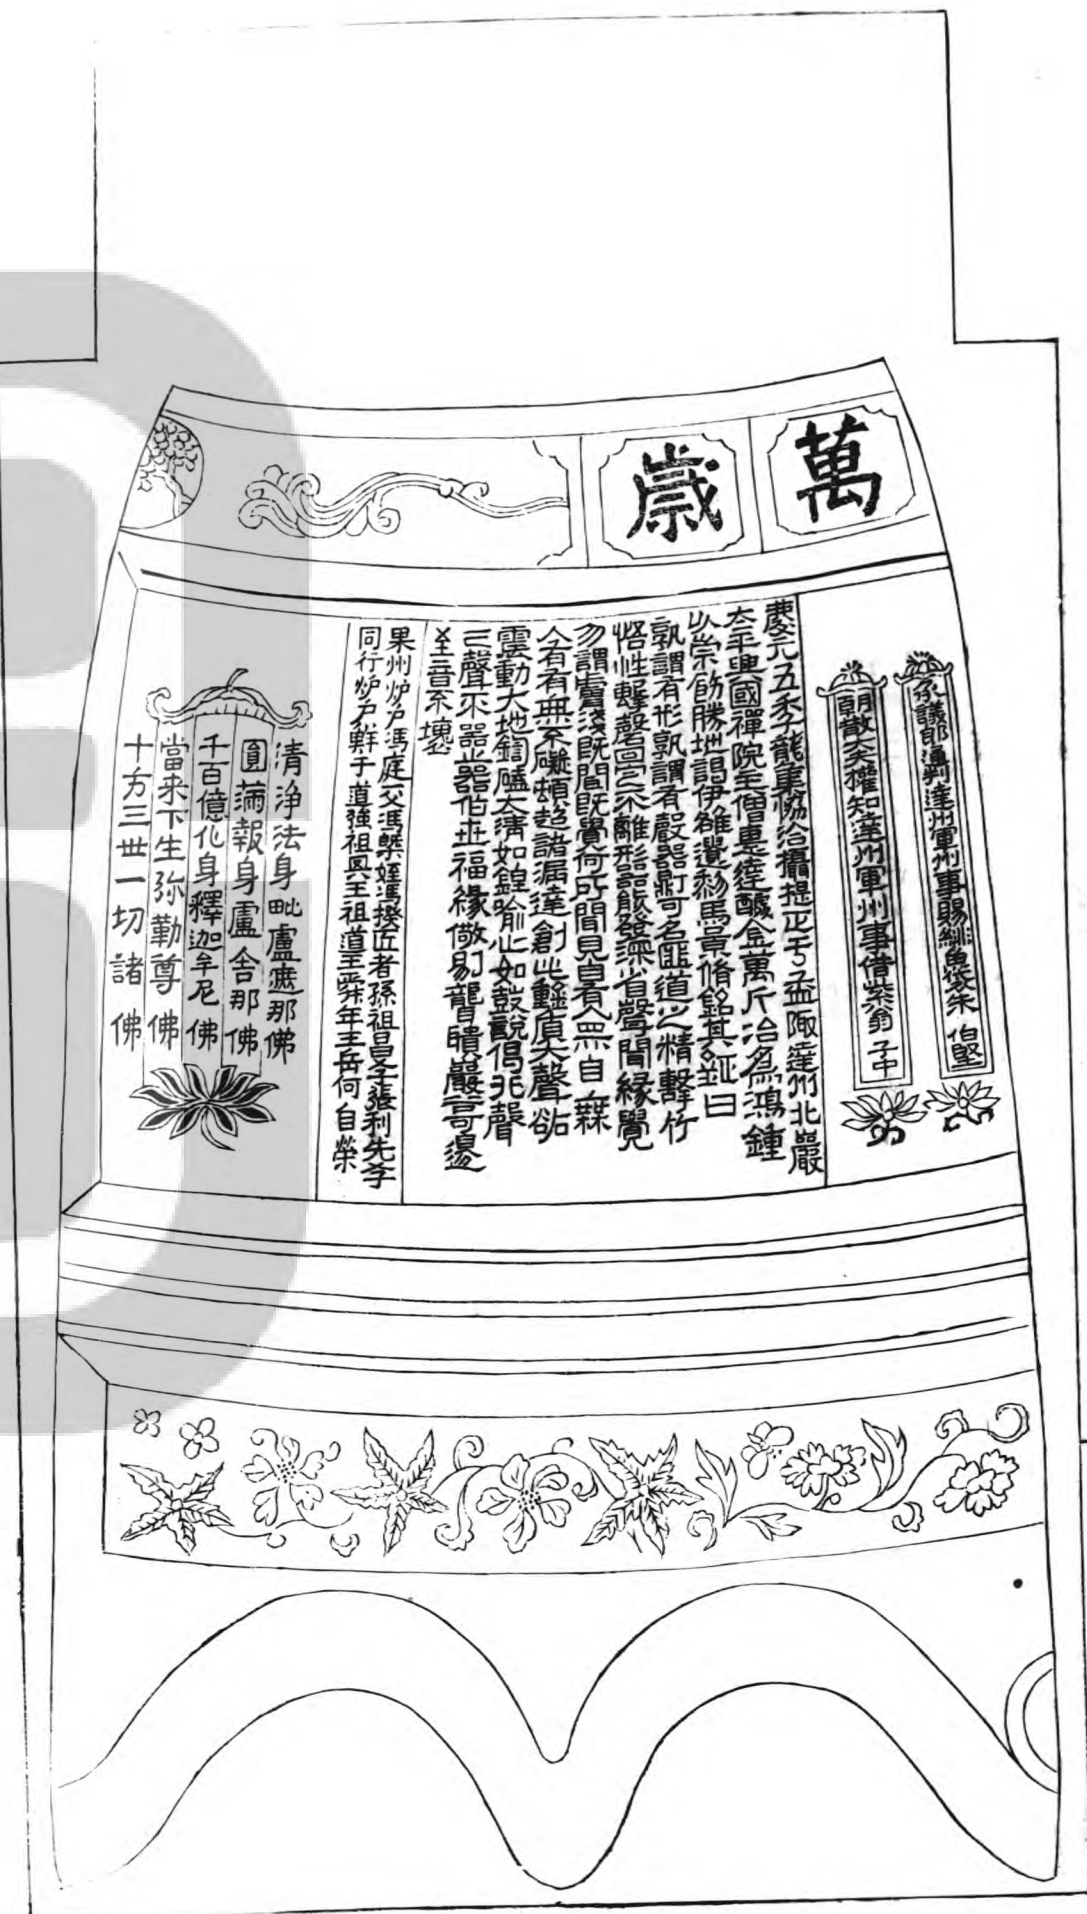 萬歲
承議郎通判達州軍州事賜緋魚袋朱 伯堅
朝散大夫權知達州軍州事借紫翁 子中
慶元五禾子龍集協洽攝提正于孟陬達州北巖
太平興國禪院主僧惠達醵金萬斤冶爲鴻鍾
以崇飭勝地謁伊雒遺黎馬景脩銘其
孰謂有形孰謂有聲器鼎可名匪道之精擊竹
悟性擊磬 不離形器 深省聲聞緣覺
勿謂膚淺既聞既覺何所聞見自有 自無
人有有無不礙頓超諸漏達創此鍾 大聲欲
震動大地鏜 太清如鍠喻此如鼓說偈非聲
之聲不器之器伯世福緣儆 昜聾聵巖高邊
至音不壞
果州炉户馮庭父馮槩姪馮揆匠者孫祖昌 張利先李
同行炉户鮮于道強祖興王祖道王舜年王岳何自榮
清淨法身毗盧遮那佛
圓滿報身盧舍那佛
千百億化身釋迦牟尼佛
當来下生弥勒尊佛
十方三世一切諸佛